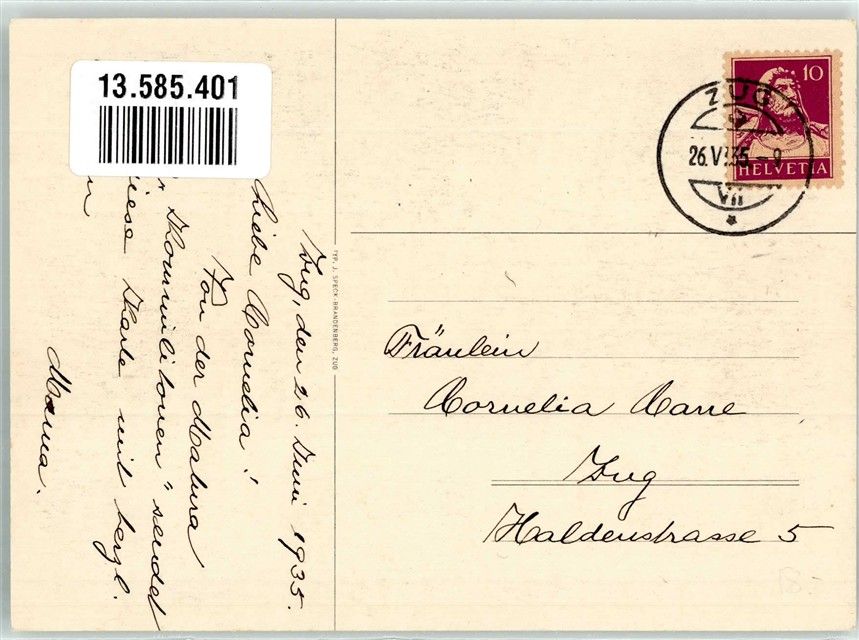 13.585.401
Zug, den 26. Juni 1935.
Liebe Cornelia!
Von der Matura
Kommilitonen" sendet
diese Karte mit herzl.
Mama.
TYP. J. SPECK-BRANDENBERG, ZUG
10
HELVETIA
ZUG
26.VI.35-9
VII
Fräulein
Cornelia
Zug
Haldenstrasse 5